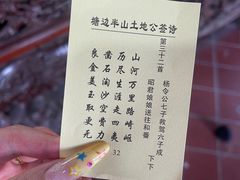 塘边半山土地公签诗
第三十二首
杨令公七子救驾六子成
昭君娘娘送往和番
下下
山河万里路崎岖
历尽生涯走四夷
凿石淘沙空费力
良金美玉取更无
32